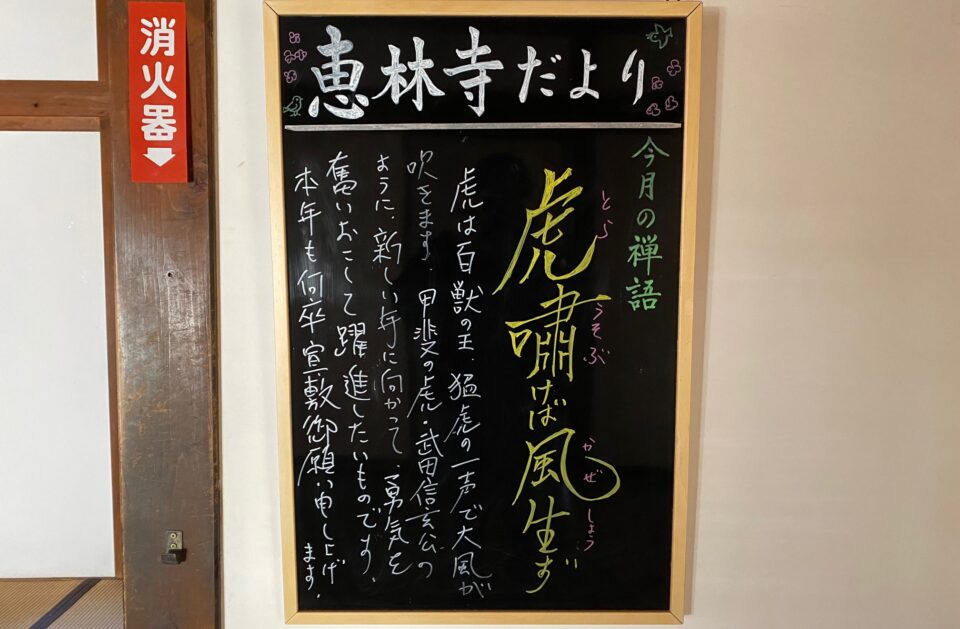 消火器
恵林寺だより
今月の禅語
とら うそぶ かぜ しょう
虎嘯けば風生ず
虎は百獣の王、猛虎の一声で大風が
吹きます。甲斐の虎・武田信玄公の
ように、新しい年に向かって、勇気を
奮いおこして躍進したいものです。
本年も何卒宜敷御願い申し上げ
ます。